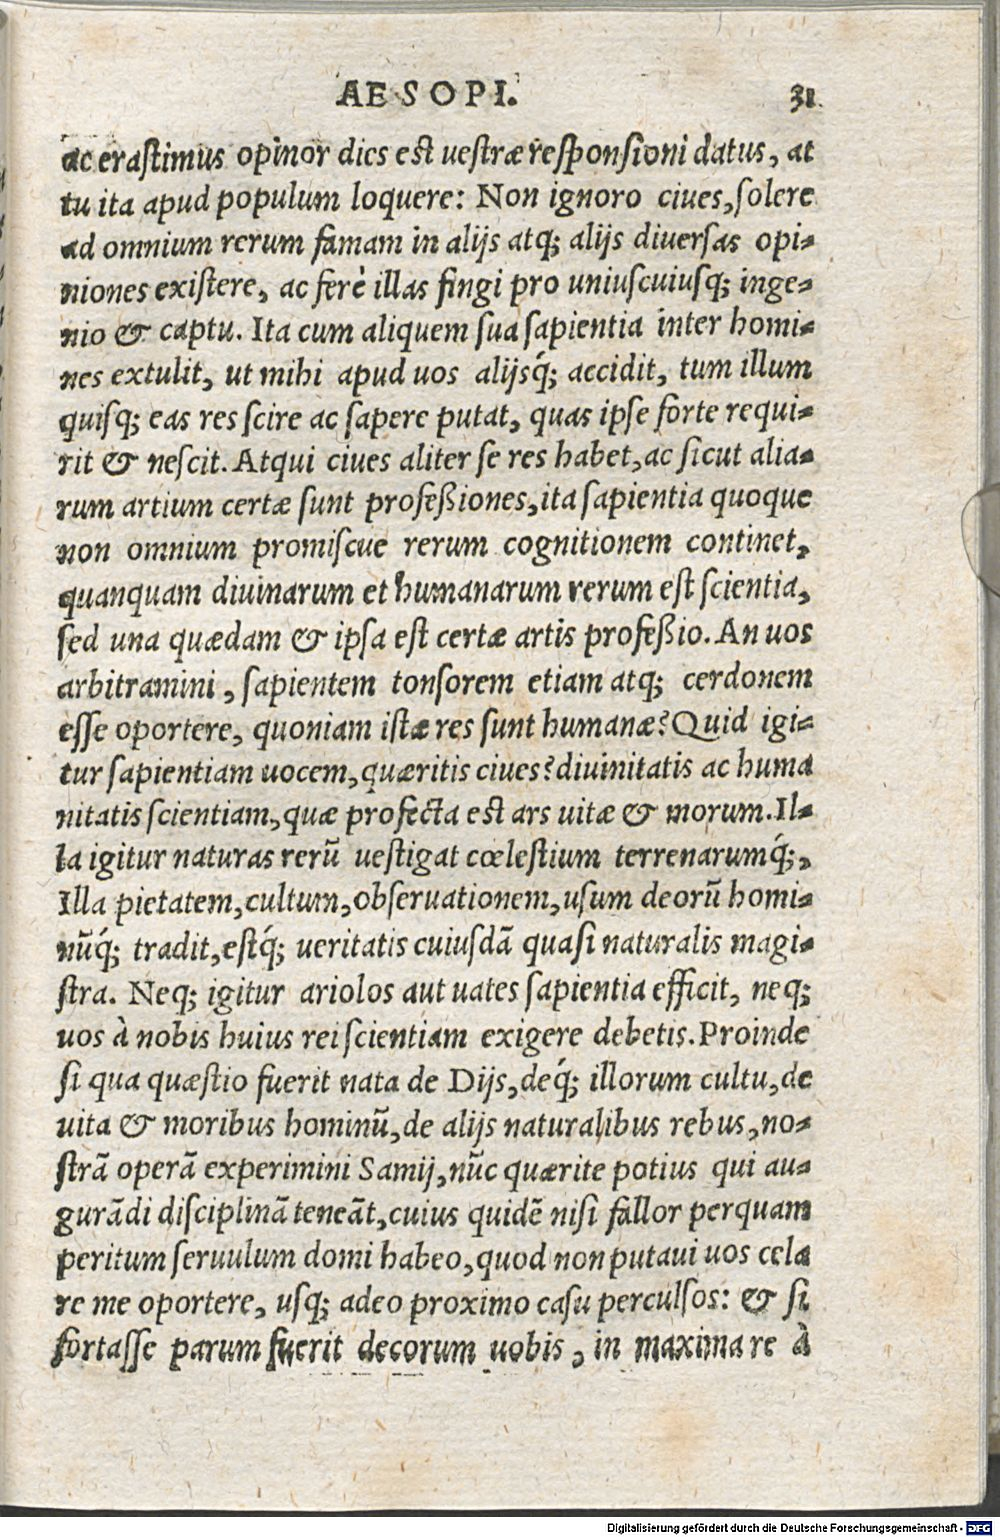 AESOPI. 31
ac erastimus opinor dies est uestræ responsioni datus, at
tu ita apud populum loquere: Non ignoro ciues, solere
ad omnium rerum famam in alijs atq; alijs diuersas opi-
niones existere, ac ferè illas fingi pro uniuscuiusq; inge-
nio & captu. Ita cum aliquem sua sapientia inter homi-
nes extulit, ut mihi apud uos alijsq́; accidit, tum illum
quisq; eas res scire ac sapere putat, quas ipse forte requi-
rit & nescit. Atqui ciues aliter se res habet, ac sicut alia-
rum artium certæ sunt profeßiones, ita sapientia quoque
non omnium promiscue rerum cognitionem continet,
quanquam diuinarum et humanarum rerum est scientia,
sed una quædam & ipsa est certæ artis profeßio. An uos
arbitramini, sapientem tonsorem etiam atq; cerdonem
esse oportere, quoniam istæ res sunt humanæ? Quid igi-
tur sapientiam uocem, quæritis ciues? diuinitatis ac huma
nitatis scientiam, quæ profecta est ars uitæ & morum. Il-
la igitur naturas rerū uestigat cœlestium terrenarumq́;,
Illa pietatem, cultum, obseruationem, usum deorū homi-
nūq́; tradit, estq́; ueritatis cuiusdā quasi naturalis magi-
stra. Neq; igitur ariolos aut uates sapientia efficit, neq;
uos à nobis huius rei scientiam exigere debetis. Proinde
si qua quæstio fuerit nata de Dijs, deq́; illorum cultu, de
uita & moribus hominū, de alijs naturalibus rebus, no-
strā operā experimini Samij, nūc quærite potius qui au-
gurādi disciplinā teneāt, cuius quidē nisi fallor perquam
peritum seruulum domi habeo, quod non putaui uos cela
re me oportere, usq; adeo proximo casu perculsos: & si
fortasse parum fuerit decorum uobis, in maxima re à
Digitalisierung gefördert durch die Deutsche Forschungsgemeinschaft - DFG